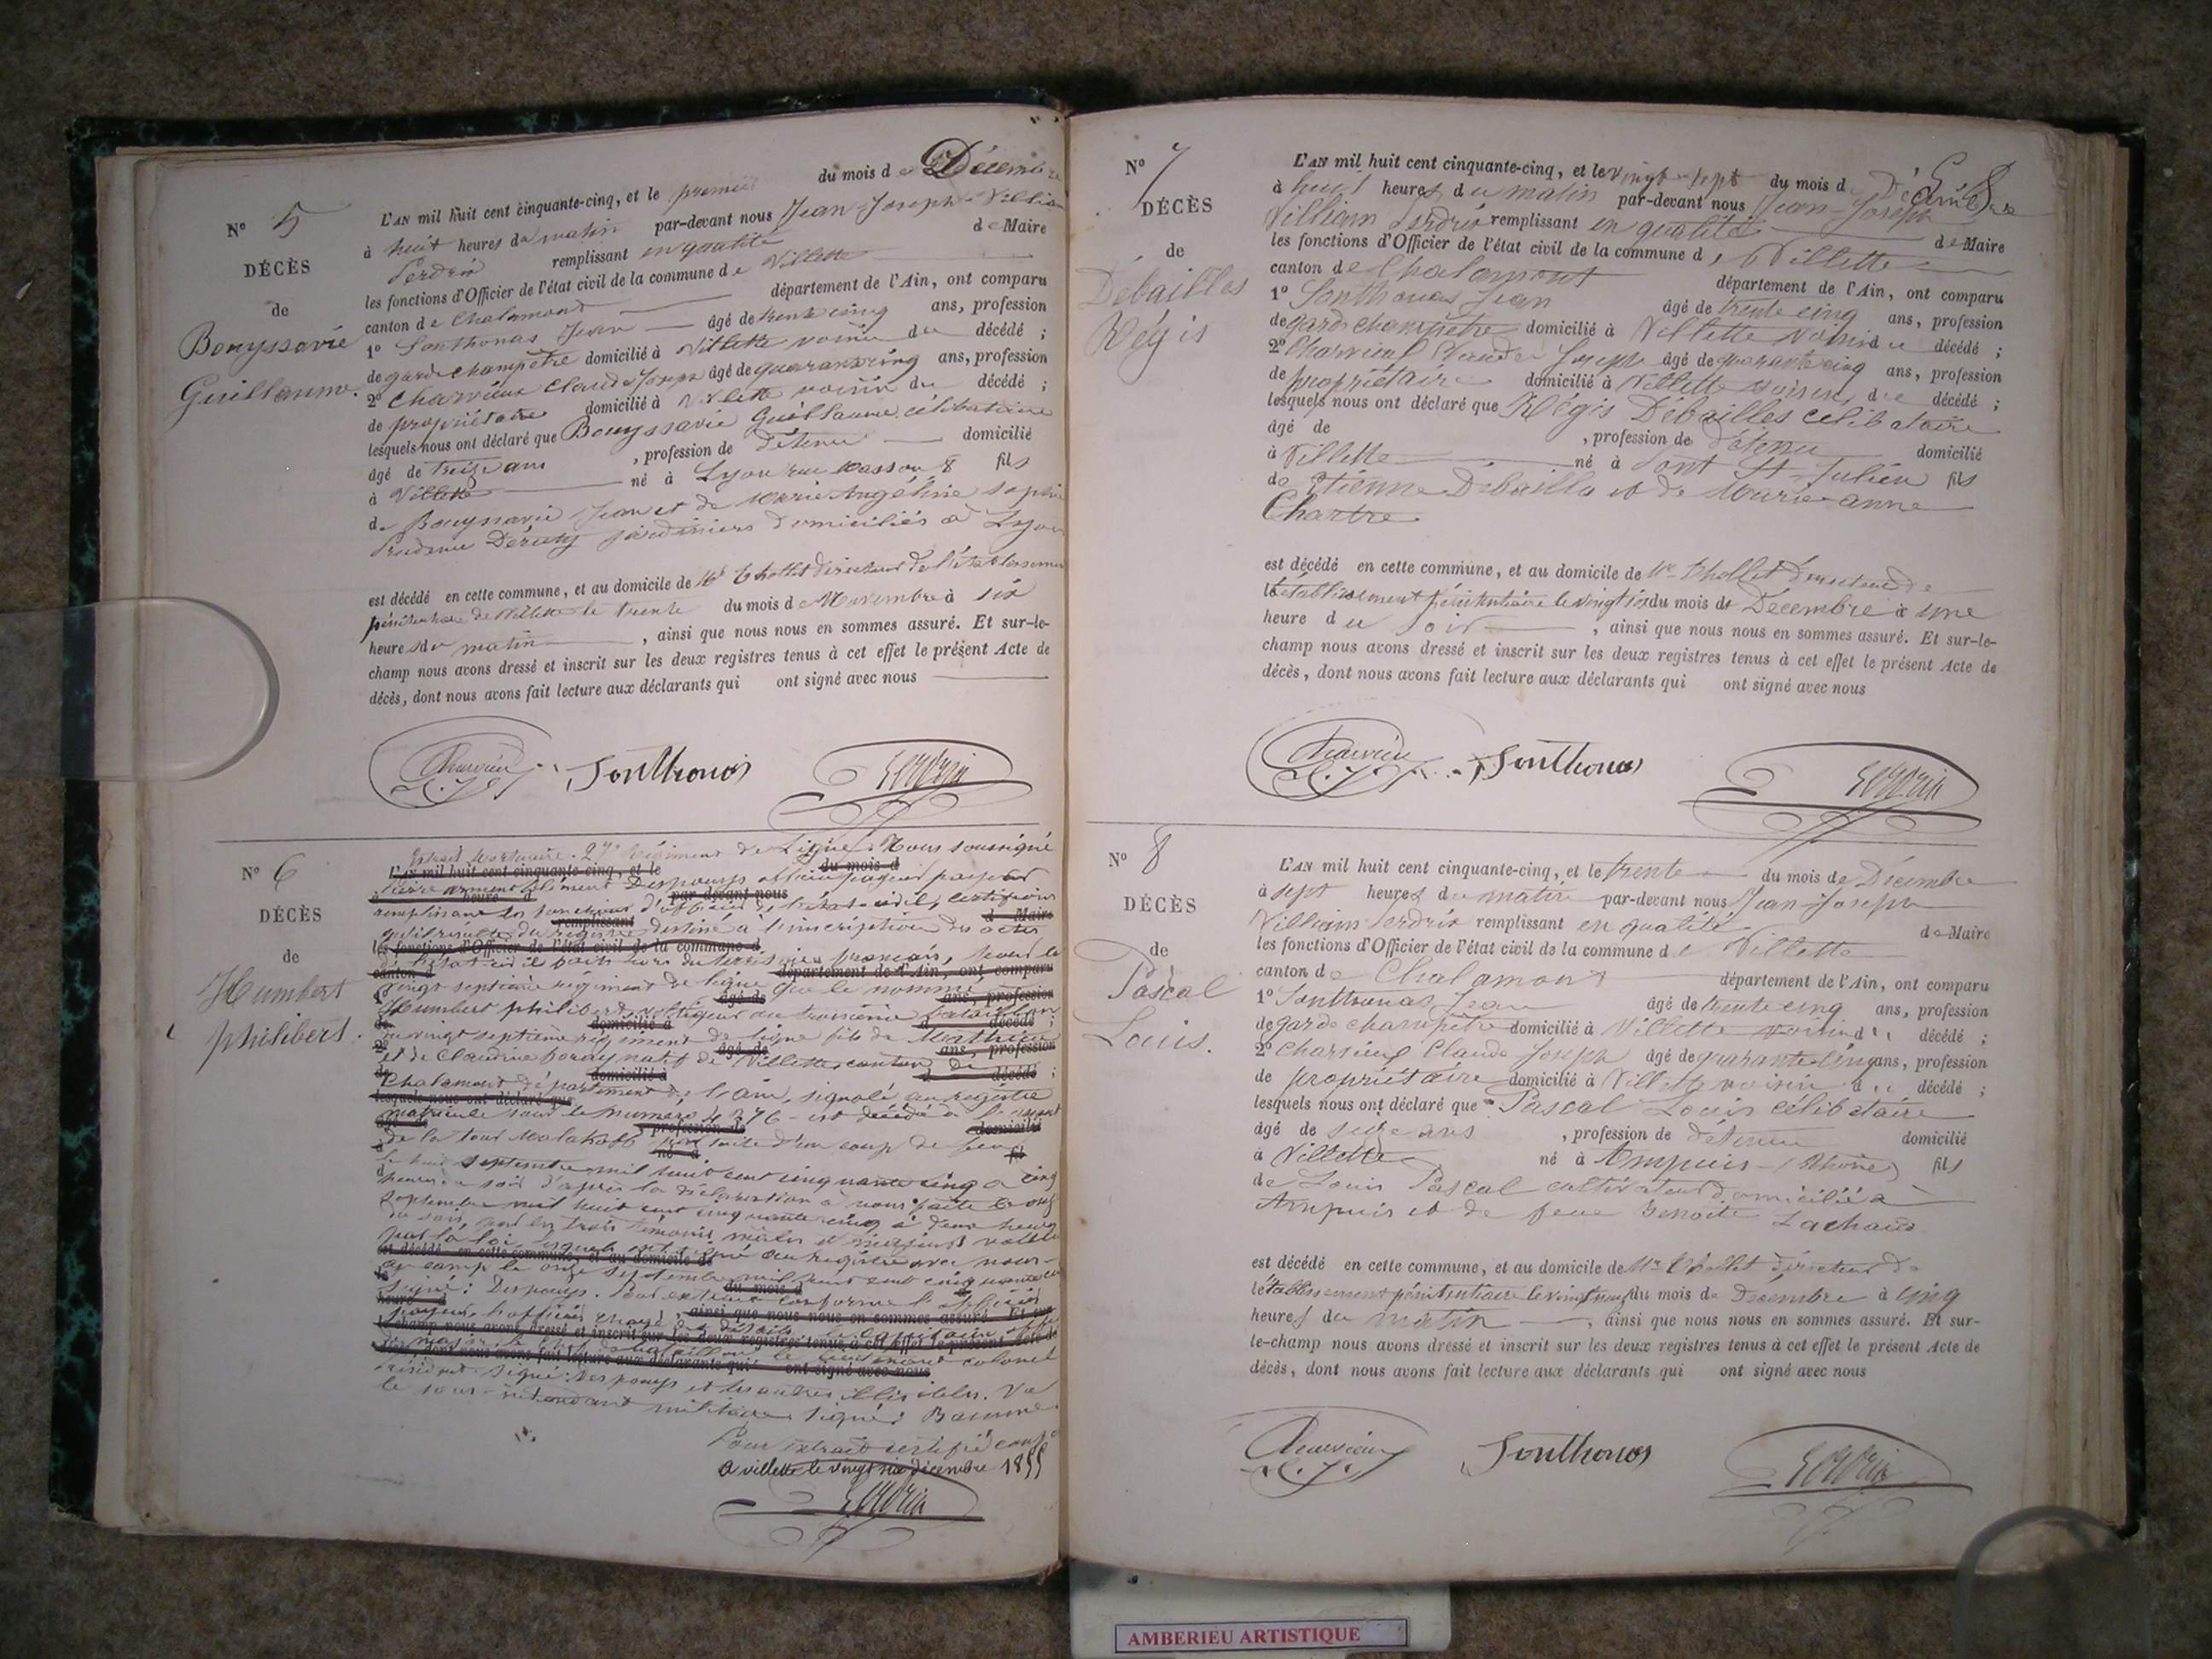 N° 5
DÉCÈS
de
Bouyssavié
Guillaume.
L'AN mil huit cent cinquante-cinq, et le premier du mois de Décembre
à huit heures du matin par-devant nous Jean-Joseph-Villiam
Perdrix remplissant en qualité de Maire
les fonctions d'Officier de l'état civil de la commune de Villette
canton de Chalamont département de l'Ain, ont comparu
1° Sonthonas Jean âgé de trente cinq ans, profession
de garde champêtre domicilié à Villette voisin du décédé ;
2° Charvieux Claude Joseph âgé de quarante cinq ans, profession
de propriétaire domicilié à Villette voisin du décédé ;
lesquels nous ont déclaré que Bouyssavié Guillaume célibataire
âgé de treize ans , profession de détenu domicilié
à Villette né à Lyon rue Masson 8 fils
de Bouyssavié Jean et de Marie Angéline Sophie
Prudence jardiniers domiciliés à Lyon
est décédé en cette commune, et au domicile de Mr Chollet directeur de l'établissement
pénitentiaire de Villette le trente du mois de Novembre à six
heures du matin , ainsi que nous nous en sommes assuré. Et sur-le-
champ nous avons dressé et inscrit sur les deux registres tenus à cet effet le présent Acte de
décès, dont nous avons fait lecture aux déclarants qui ont signé avec nous
Charvieu
C. J.
Sonthonas
Perdrix
N° 6
DÉCÈS
de
Humbert
philibert.
Extrait Mortuaire. 27e Régiment de Ligne. Nous soussigné
Pierre armand Clément Despouys officier payeur
remplissant les fonctions d'officier de l'état-civil, certifions
qu'il résulte du registre destiné à l'inscription des actes
de l'état civil faits hors du territoire français, pour le
vingt septième régiment de ligne que le nommé
Humbert philibert, voltigeur au troisième bataillon
du vingt septième régiment de ligne fils de Mathieu
et de Claudine natif de Villette canton de
Chalamont département de l'ain, signalé au registre
matricule sous le numéro 4376 est décédé à l'assaut
de la tour Malakoff par suite d'un coup de feu
le huit septembre mil huit cent cinquante cinq à cinq
heures du soir d'après la déclaration à nous faite le onze
septembre mil huit cent cinquante cinq à deux heures
du soir, par les trois témoins mâles et majeurs voulus
par la loi, lesquels ont signé au registre avec nous
au camp le onze septembre mil huit cent cinquante cinq
signé : Despouys. Pour extrait conforme l'officier
payeur, l'officier chargé des détails
du bataillon le lieutenant colonel
président signé : Despouys et les autres illisibles. Vu
le sous-intendant militaire signé : Baume
Pour extrait certifié conf.
a villette le vingt six décembre 1855
Perdrix
N° 7
DÉCÈS
de
Débailles
Régis
L'AN mil huit cent cinquante-cinq, et le vingt-sept du mois de Décembre
à huit heures du matin par-devant nous Jean-Joseph
Villiam Perdrix remplissant en qualité de Maire
les fonctions d'Officier de l'état civil de la commune de Villette
canton de Chalamont département de l'Ain, ont comparu
1° Sonthonas Jean âgé de trente cinq ans, profession
de garde champêtre domicilié à Villette voisin du décédé ;
2° Charvieux Claude Joseph âgé de quarante cinq ans, profession
de propriétaire domicilié à Villette voisin du décédé ;
lesquels nous ont déclaré que Régis Débailles célibataire
âgé de , profession de détenu domicilié
à Villette né à Pont St Julien fils
de Etienne Débailla et de Marie-anne
Chartre
est décédé en cette commune, et au domicile de Mr Chollet Directeur de
l'établissement pénitentiaire le vingt six du mois de Décembre à une
heure du soir , ainsi que nous nous en sommes assuré. Et sur-le-
champ nous avons dressé et inscrit sur les deux registres tenus à cet effet le présent Acte de
décès, dont nous avons fait lecture aux déclarants qui ont signé avec nous
Charvieu
C. J.
Sonthonas
Perdrix
N° 8
DÉCÈS
de
Pascal
Louis.
L'AN mil huit cent cinquante-cinq, et le trente du mois de Décembre
à sept heures du matin par-devant nous Jean-Joseph
Villiam Perdrix remplissant en qualité de Maire
les fonctions d'Officier de l'état civil de la commune de Villette
canton de Chalamont département de l'Ain, ont comparu
1° Sonthonas Jean âgé de trente cinq ans, profession
de garde champêtre domicilié à Villette voisin du décédé ;
2° Charvieux Claude Joseph âgé de quarante cinq ans, profession
de propriétaire domicilié à Villette voisin du décédé ;
lesquels nous ont déclaré que Pascal Louis célibataire
âgé de seize ans , profession de détenu domicilié
à Villette né à Ampuis (Rhône) fils
de Louis Pascal cultivateur domicilié à
Ampuis et de feue Benoite Zachaus
est décédé en cette commune, et au domicile de Mr Chollet directeur de
l'établissement pénitentiaire le vingt neuf du mois de Décembre à cinq
heures du matin , ainsi que nous nous en sommes assuré. Et sur-
le-champ nous avons dressé et inscrit sur les deux registres tenus à cet effet le présent Acte de
décès, dont nous avons fait lecture aux déclarants qui ont signé avec nous
Charvieu
C. J.
Sonthonas
Perdrix
AMBERIEU ARTISTIQUE